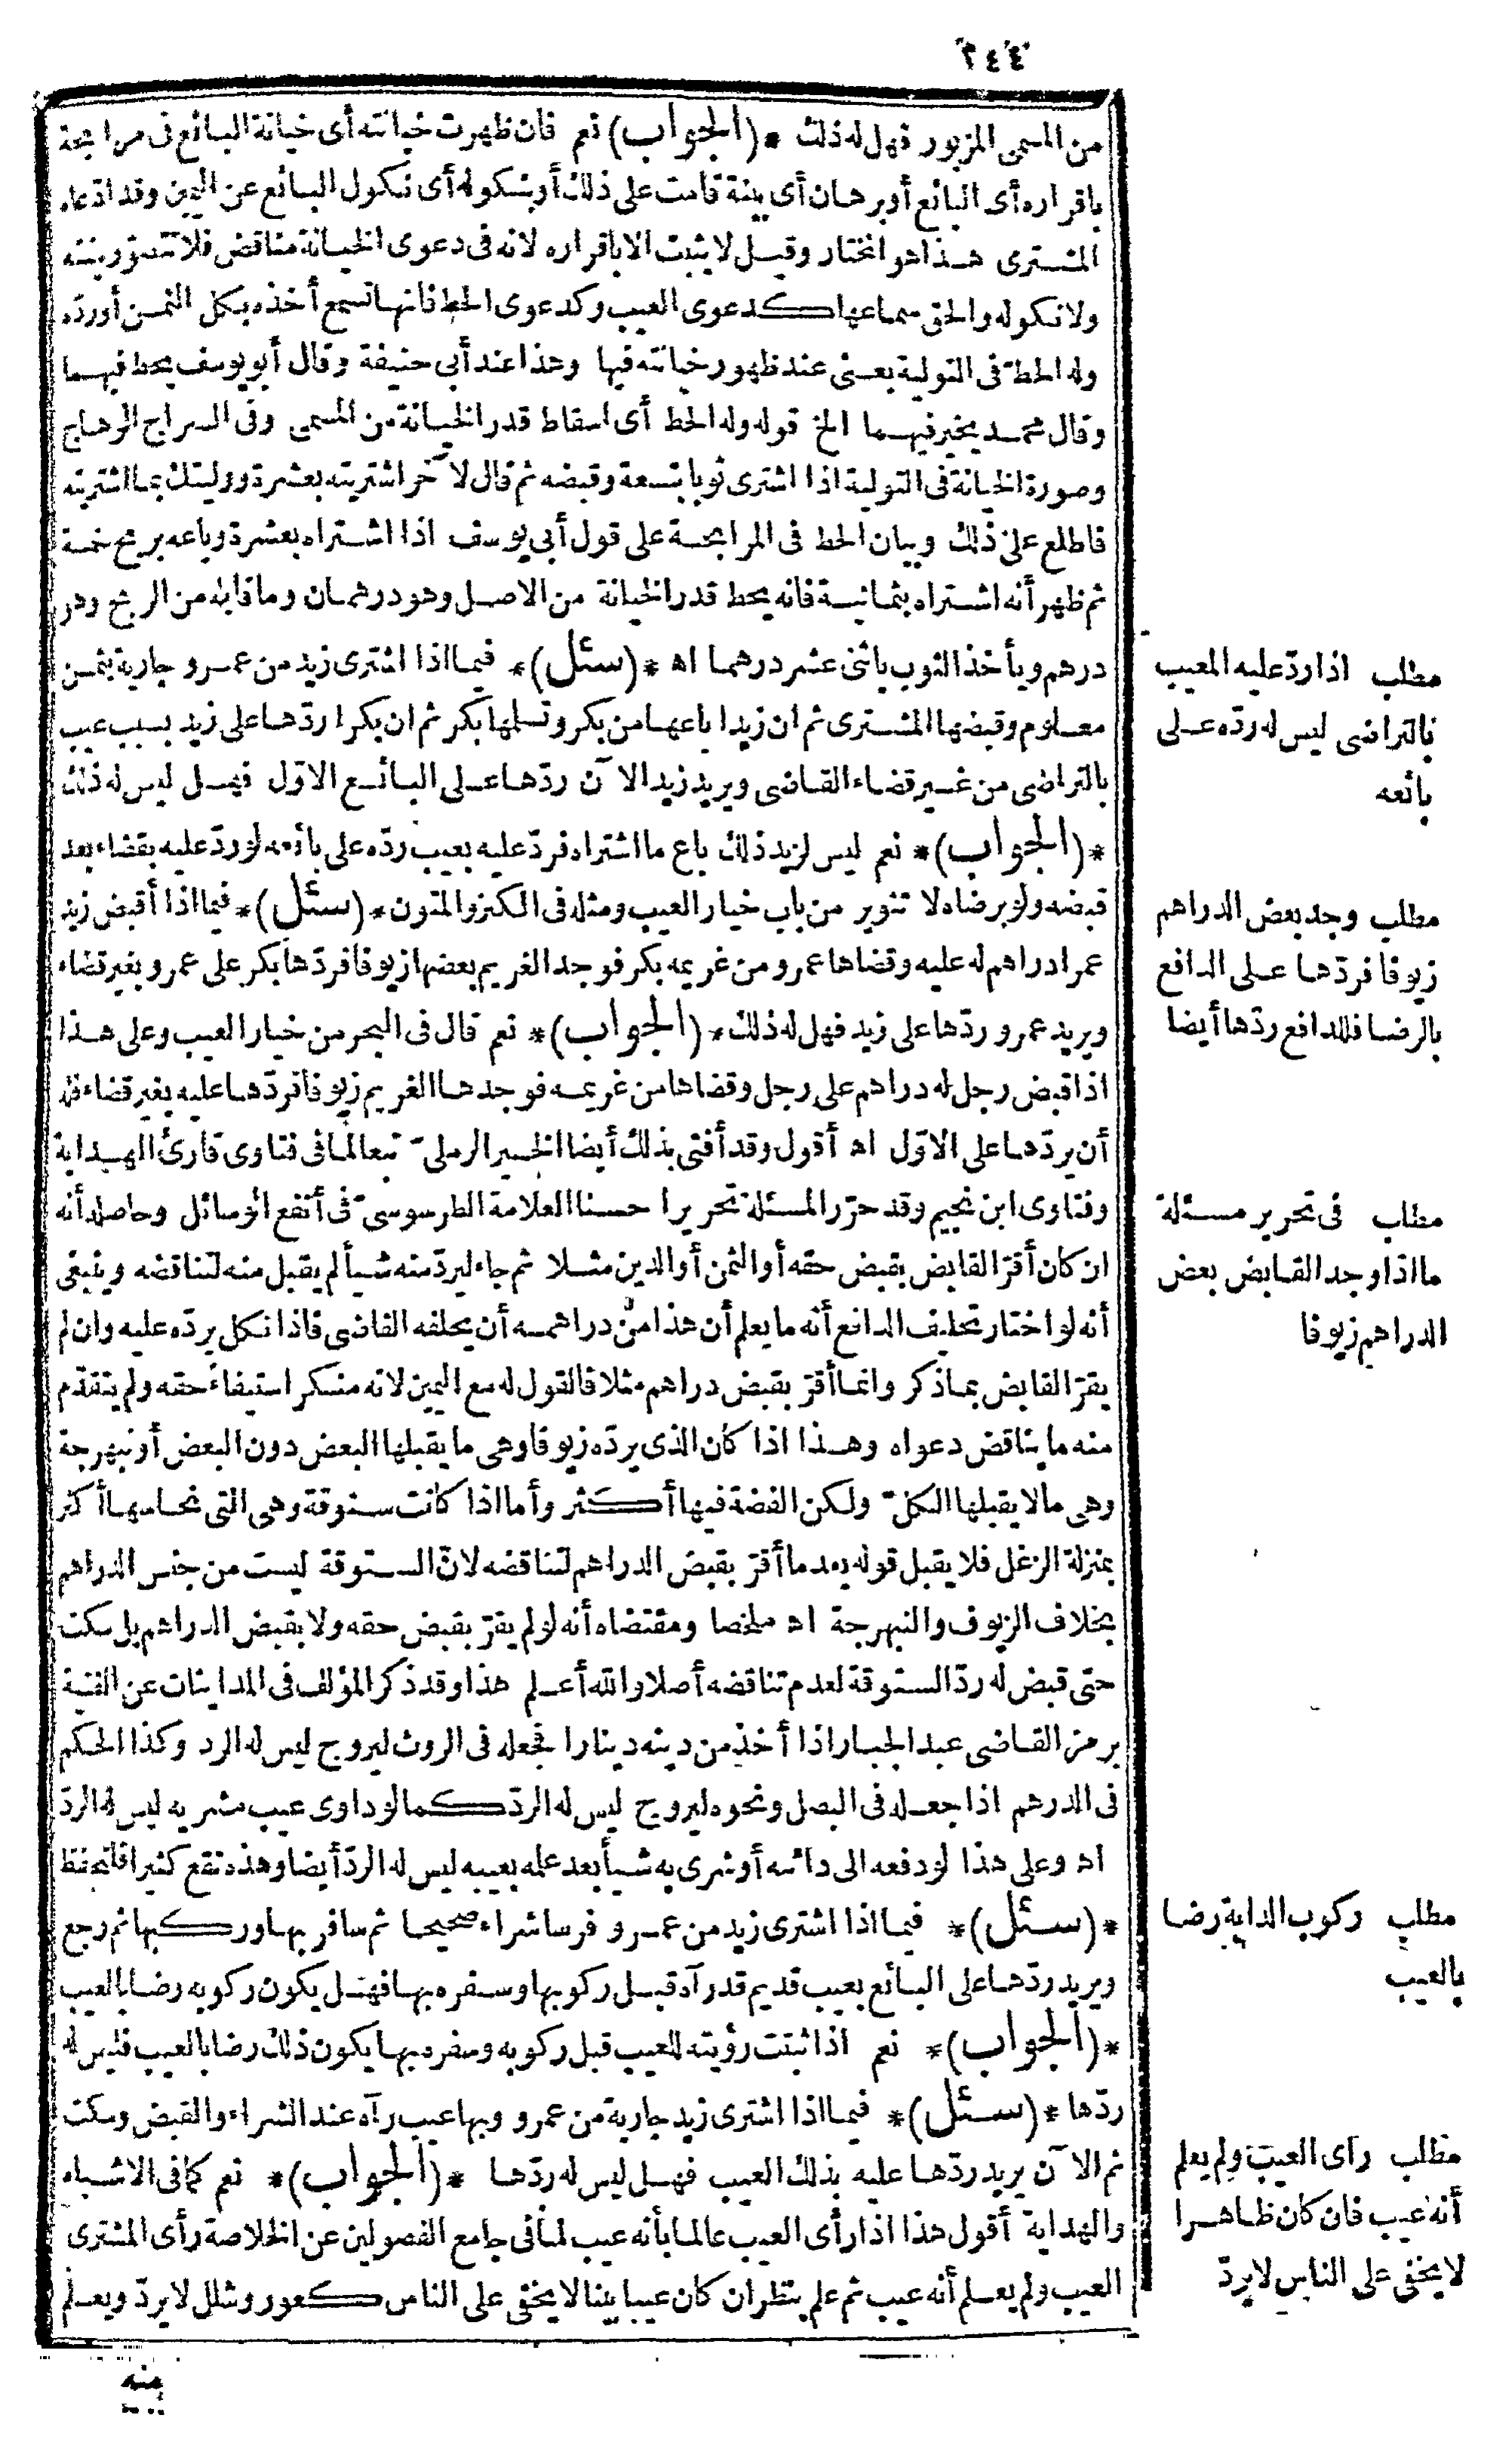 ٢٤٤
من المسمى المزبور فهل له ذلك * (الجواب) نعم فان ظهرت خيانته أى خيانة البائع فى مرابحة
باقراره أى البائع أو برهان أى بينة قامت على ذلك أو بنكوله أى نكول البائع عن اليمين وقد ادعاه
المشترى هذا هو المختار وقيل لا يثبت الا باقراره لانه فى دعوى الخيانة مناقض فلا تتصور بينته
ولا نكوله والحق سماعها كدعوى العيب وكدعوى الحط فانها تسمع أخذه بكل الثمن أو ردّه
وله الحطّ فى التولية يعنى عند ظهور خيانته فيها وهذا عند أبى حنيفة وقال أبو يوسف يحط فيهما
وقال محمد يخير فيهما الخ قوله وله الحط أى اسقاط قدر الخيانة من المسمى وفى السراج الوهاج
وصورة الخيانة فى التولية اذا اشترى ثوبا بتسعة وقبضه ثم قال لآخر اشتريته بعشرة ووليتك بما اشتريته
فاطلع على ذلك وبيان الحط فى المرابحة على قول أبى يوسف اذا اشتراه بعشرة وباعه بربح خمسة
ثم ظهر أنه اشتراه بثمانية فانه يحط قدر الخيانة من الاصل وهو درهمان وما قابله من الربح وهو
درهم ويأخذ الثوب باثنى عشر درهما اه * (سئل) * فيما اذا اشترى زيد من عمرو جارية بثمن
معلوم وقبضها المشترى ثم ان زيدا باعها من بكر وتسلمها بكر ثم ان بكرا ردّها على زيد بسبب عيب
بالتراضى من غير قضاء القاضى ويريد زيد الآن ردّها على البائع الاوّل فهل ليس له ذلك
* (الجواب) * نعم ليس لزيد ذلك باع ما اشتراه فردّ عليه بعيب ردّه على بائعه لو ردّ عليه بقضاء بعد
قبضه ولو برضاه لا تنوير من باب خيار العيب ومثله فى الكنز والمتون * (سئل) * فيما اذا أقبض زيد
عمرا دراهم له عليه وقضاها عمرو من غريمه بكر فوجد الغريم بعضها زيوفا فردّها بكر على عمرو بغير قضاء
ويريد عمرو ردّها على زيد فهل له ذلك * (الجواب) * نعم قال فى البحر من خيار العيب وعلى هذا
اذا قبض رجل له دراهم على رجل وقضاها من غريمه فوجدها الغريم زيوفا فردّها عليه بغير قضاء فله
أن يردّها على الاوّل اه أقول وقد أفتى بذلك أيضا الخير الرملىّ تبعا لما فى فتاوى قارئ الهداية
وفتاوى ابن نجيم وقد حرّر المسئلة تحريرا حسنا العلامة الطرسوسىّ فى أنفع الوسائل وحاصله أنه
ان كان أقرّ القابض بقبض حقه أو الثمن أو الدين مثلا ثم جاء ليردّ منه شيأ لم يقبل منه لتناقضه وينبغى
أنه لو اختار تحليف الدافع أنه ما يعلم أن هذا من دراهمه أن يحلفه القاضى فاذا نكل يردّه عليه وان لم
يقرّ القابض بما ذكر وانما أقرّ بقبض دراهم مثلا فالقول له مع اليمين لانه منكر استيفاء حقه ولم يتقدّم
منه ما يناقض دعواه وهذا اذا كان الذى يردّه زيوفا وهى ما يقبلها البعض دون البعض أو نبهرجة
وهى ما لا يقبلها الكلّ ولكن الفضة فيها أكثر وأما اذا كانت ستوقة وهى التى نحاسها أكثر
بمنزلة الزغل فلا يقبل قوله بعد ما أقرّ بقبض الدراهم لتناقضه لانّ الستوقة ليست من جنس الدراهم
بخلاف الزيوف والنبهرجة اه ملخصا ومقتضاه أنه لو لم يقرّ بقبض حقه ولا بقبض الدراهم بل سكت
حتى قبض له ردّ الستوقة لعدم تناقضه أصلا والله أعلم هذا وقد ذكر المؤلف فى المداينات عن القنية
برمز القاضى عبد الجبار اذا أخذ من دينه دينارا فجعله فى الروث ليروج ليس له الرد وكذا الحكم
فى الدرهم اذا جعله فى البصل ونحوه ليروج ليس له الردّ كما لو داوى عيب مشريه ليس له الردّ
اه وعلى هذا لو دفعه الى دائنه أو شرى به شيأ بعد علمه بعيبه ليس له الردّ أيضا وهذه تقع كثيرا فلتحفظ
* (سئل) * فيما اذا اشترى زيد من عمرو فرسا شراء صحيحا ثم سافر بها وركبها ثم رجع
ويريد ردّها على البائع بعيب قديم قد رآه قبل ركوبها وسفره بها فهل يكون ركوبه رضا بالعيب
* (الجواب) * نعم اذا ثبتت رؤيته للعيب قبل ركوبه وسفره بها يكون ذلك رضا بالعيب فليس له
ردّها * (سئل) * فيما اذا اشترى زيد جارية من عمرو وبها عيب رآه عند الشراء والقبض وسكت
ثم الآن يريد ردّها عليه بذلك العيب فهل ليس له ردّها * (الجواب) * نعم كما فى الاشباه
والهداية أقول هذا اذا رأى العيب عالما بأنه عيب لما فى جامع الفصولين عن الخلاصة رأى المشترى
العيب ولم يعلم أنه عيب ثم علم ينظر ان كان عيبا بينا لا يخفى على الناس كعور وشلل لا يردّ ويعلم
منه
مطلب اذا ردّ عليه المعيب
بالتراضى ليس له ردّه على
بائعه
مطلب وجد بعض الدراهم
زيوفا فردّها على الدافع
بالرضا فللدافع ردّها أيضا
مطلب فى تحرير مسئلة
ما اذا وجد القابض بعض
الدراهم زيوفا
مطلب ركوب الدابة رضا
بالعيب
مطلب رأى العيب ولم يعلم
أنه عيب فان كان ظاهرا
لا يخفى على الناس لا يردّ